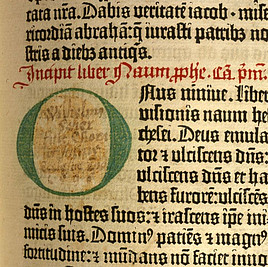 cata nr̄a. Dabis veritatē iacob · mise-
ricordiā abrahā: q̄ iurasti patribz no-
stris a diebz antiqs.
Incipit liber Naum ꝓphe. Ca. pm̄.
Onus niniue. Liber
visionis naum he
chesei. Deus emula
tor ⁊ ulciscens dn̄s:
ulciscens dn̄s et ha
bens furorē: ulciscēs
dn̄s in hostes suos: ⁊ irascens ip̄e ini
micis suis. Dominꝰ patiēs ⁊ magnꝰ
fortitudine: ⁊ mūdans nō faciet inno